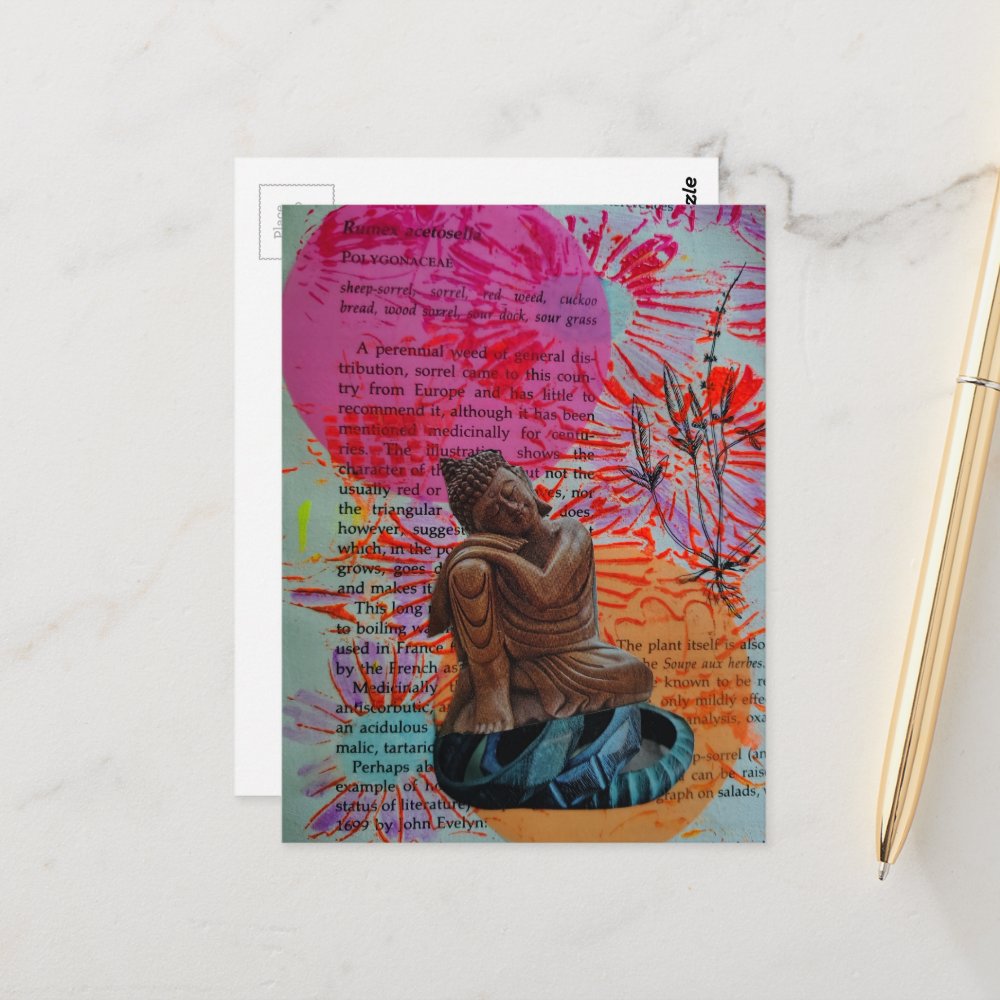 Place
zzle
Rumex acetosella
POLYGONACEAE
sheep-sorrel, sorrel, red weed, cuckoo
bread, wood sorrel, sour dock, sour grass
A perennial weed of general dis-
tribution, sorrel came to this coun-
try from Europe and has little to
recommend it, although it has been
mentioned medicinally for centu-
ries. The illustrati shows the
character of th ut not the
usually red or es, nor
the triangular does,
however, suggest t
which, in the po
grows, goes d
and makes it
This long
to boiling wa
used in France
by the French as
Medicinally
antiscorbutic, a
an acidulous
malic, tartaric
Perhaps ab
example of h
status of literature)
1699 by John Evelyn:
The plant itself is also
he Soupe aux herbes.
known to be re
only mildly effe
analysis, oxa
p-sorrel (an
can be raise
graph on salads,